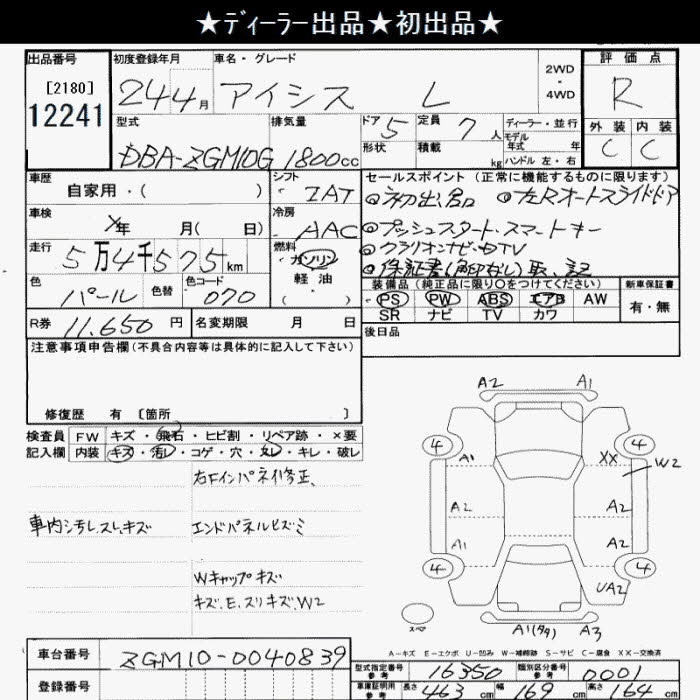 ★ディーラー出品★初出品★
出品番号 初度登録年月 車名・グレード 2WD・4WD 評価点
[2180]
12241
24 4月 アイシス L R
型式 排気量 ドア 5 定員 7人 ディーラー・並行 外装 内装
形状 積載 kg モデル年式 年 C C
DBA-ZGM10G 1800cc ハンドル 左・右
車歴 シフト セールスポイント(正常に機能するものに限ります)
自家用・( ) IAT ◎初出品 ◎左Rオートスライドドア
車検 年 月( 日) 冷房 AAC ◎プッシュスタート・スマートキー
走行 5万4千575km 燃料 ガソリン ◎クラリオンナビ・地TV
軽油 ◎保証書(角印なし)取、記
( )
色 パール 色替 色コード 070 装備品(純正品に限り○をつけてください) 新車保証書
PS PW ABS エアB AW 有・無
SR ナビ TV カワ
R券 11,650円 名変期限 月 日 後日品
注意事項申告欄(不具合内容等は具体的に記入して下さい)
修復歴 有 [箇所 ]
検査員 FW キズ・飛石・ヒビ割・リペア跡・×要
記入欄 内装 キズ・汚レ・コゲ・穴・スレ・キレ・破レ
右Fインパネイ修正、
車内シヂレ、スレ、キズ エンドパネルヒズミ
Wキャップキズ
キズ、E、スリキズ、W2
A2 A1
4 4
A1 XX W2
A2 A2
A1 A2
4 4
UA2
スペア
A1(タタ) A3
A-キズ E-エクボ U-凹み W-補修跡 S-サビ C-腐食 XX-交換済
車台番号 ZGM10-0040839
登録番号
型式指定番号 参考 16350 類別区分番号 参考 0001
車庫証明用 参考 長さ 463 cm 幅 169 cm 高さ 164 cm